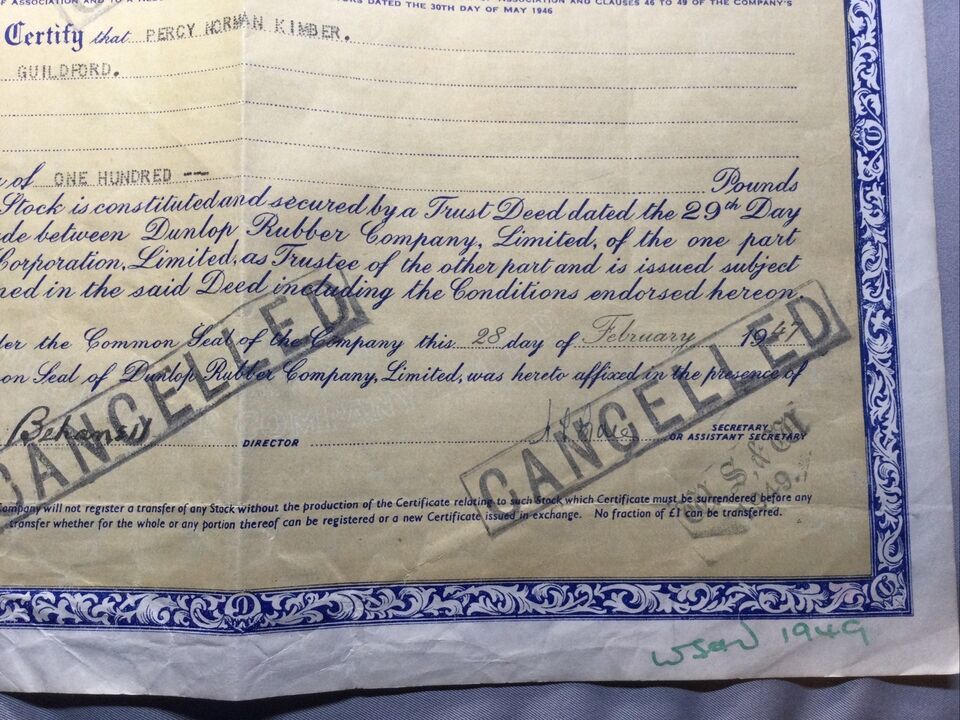 DATED THE 30TH DAY OF MAY 1946 ASSOCIATION AND CLAUSES 46 TO 49 OF THE COMPANY'S
Certify that PERCY NORMAN KIMBER.
GUILDFORD.
of ONE HUNDRED --- Pounds
Stock is constituted and secured by a Trust Deed dated the 29th Day
between Dunlop Rubber Company, Limited, of the one part
Corporation, Limited, as Trustee of the other part and is issued subject
in the said Deed including the Conditions endorsed hereon.
the Common Seal of the Company this 28 day of February 1947
Seal of Dunlop Rubber Company, Limited, was hereto affixed in the presence of
CANCELLED
CANCELLED
DIRECTOR
SECRETARY
OR ASSISTANT SECRETARY
Company will not register a transfer of any Stock without the production of the Certificate relating to such Stock which Certificate must be surrendered before any
transfer whether for the whole or any portion thereof can be registered or a new Certificate issued in exchange. No fraction of £1 can be transferred.
1949